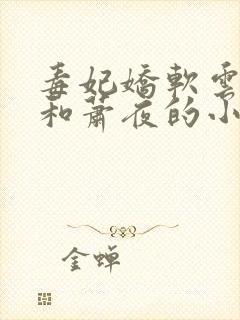 毒妃嬌軟雲
和蕭夜的小
金蝉